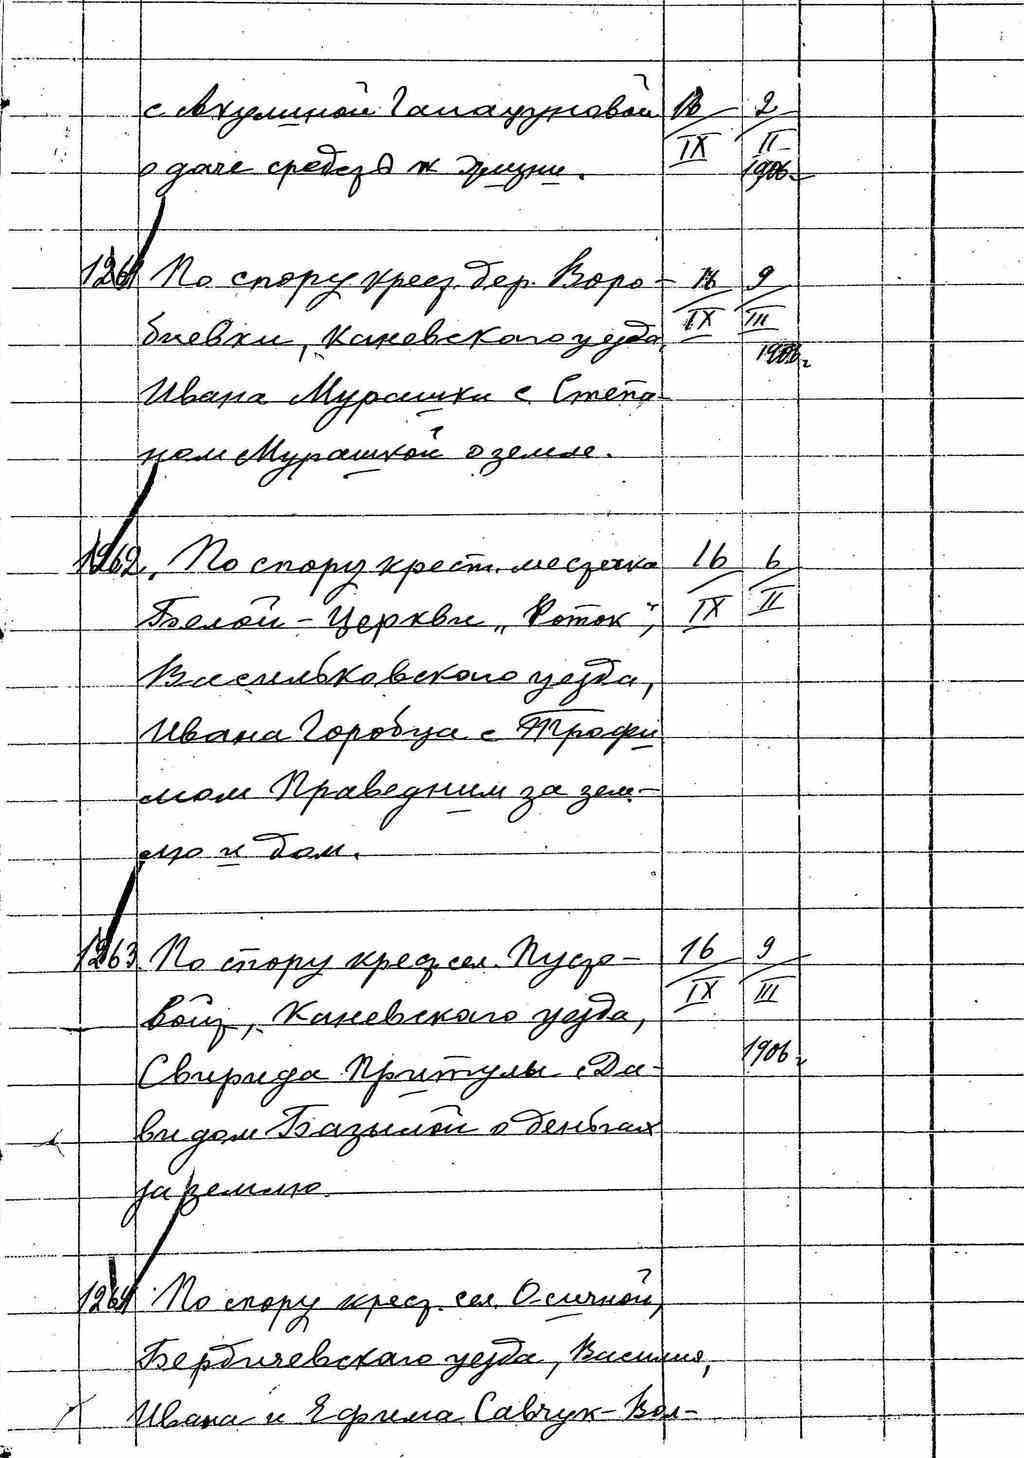 с Акулиной Гапагуновой 16 2
о даче средств к жизни. IX II
1906 г
1261 По спору крест. дер. Воро- 16 9
биевки, Каневского уезда, IX III
1906 г
Ивана Мурашки с Степа-
ном Мурашкой о земле.
1262. По спору крест. местечка 16 6
Белой-Церкви „Роток“, IX II
Васильковского уезда,
Ивана Горобца с Трофи
мом Праведным за зем-
лю и дом.
1263. По спору крест. сел. Пусто- 16 9
войт, Каневского уезда, IX III
Свирида Притулы с Да- 1906 г
видом Базылой о деньгах
за землю.
1264 По спору крест. сел. Осичной,
Бердичевского уезда, Василия,
Ивана и Ефима Савчук-Вол-